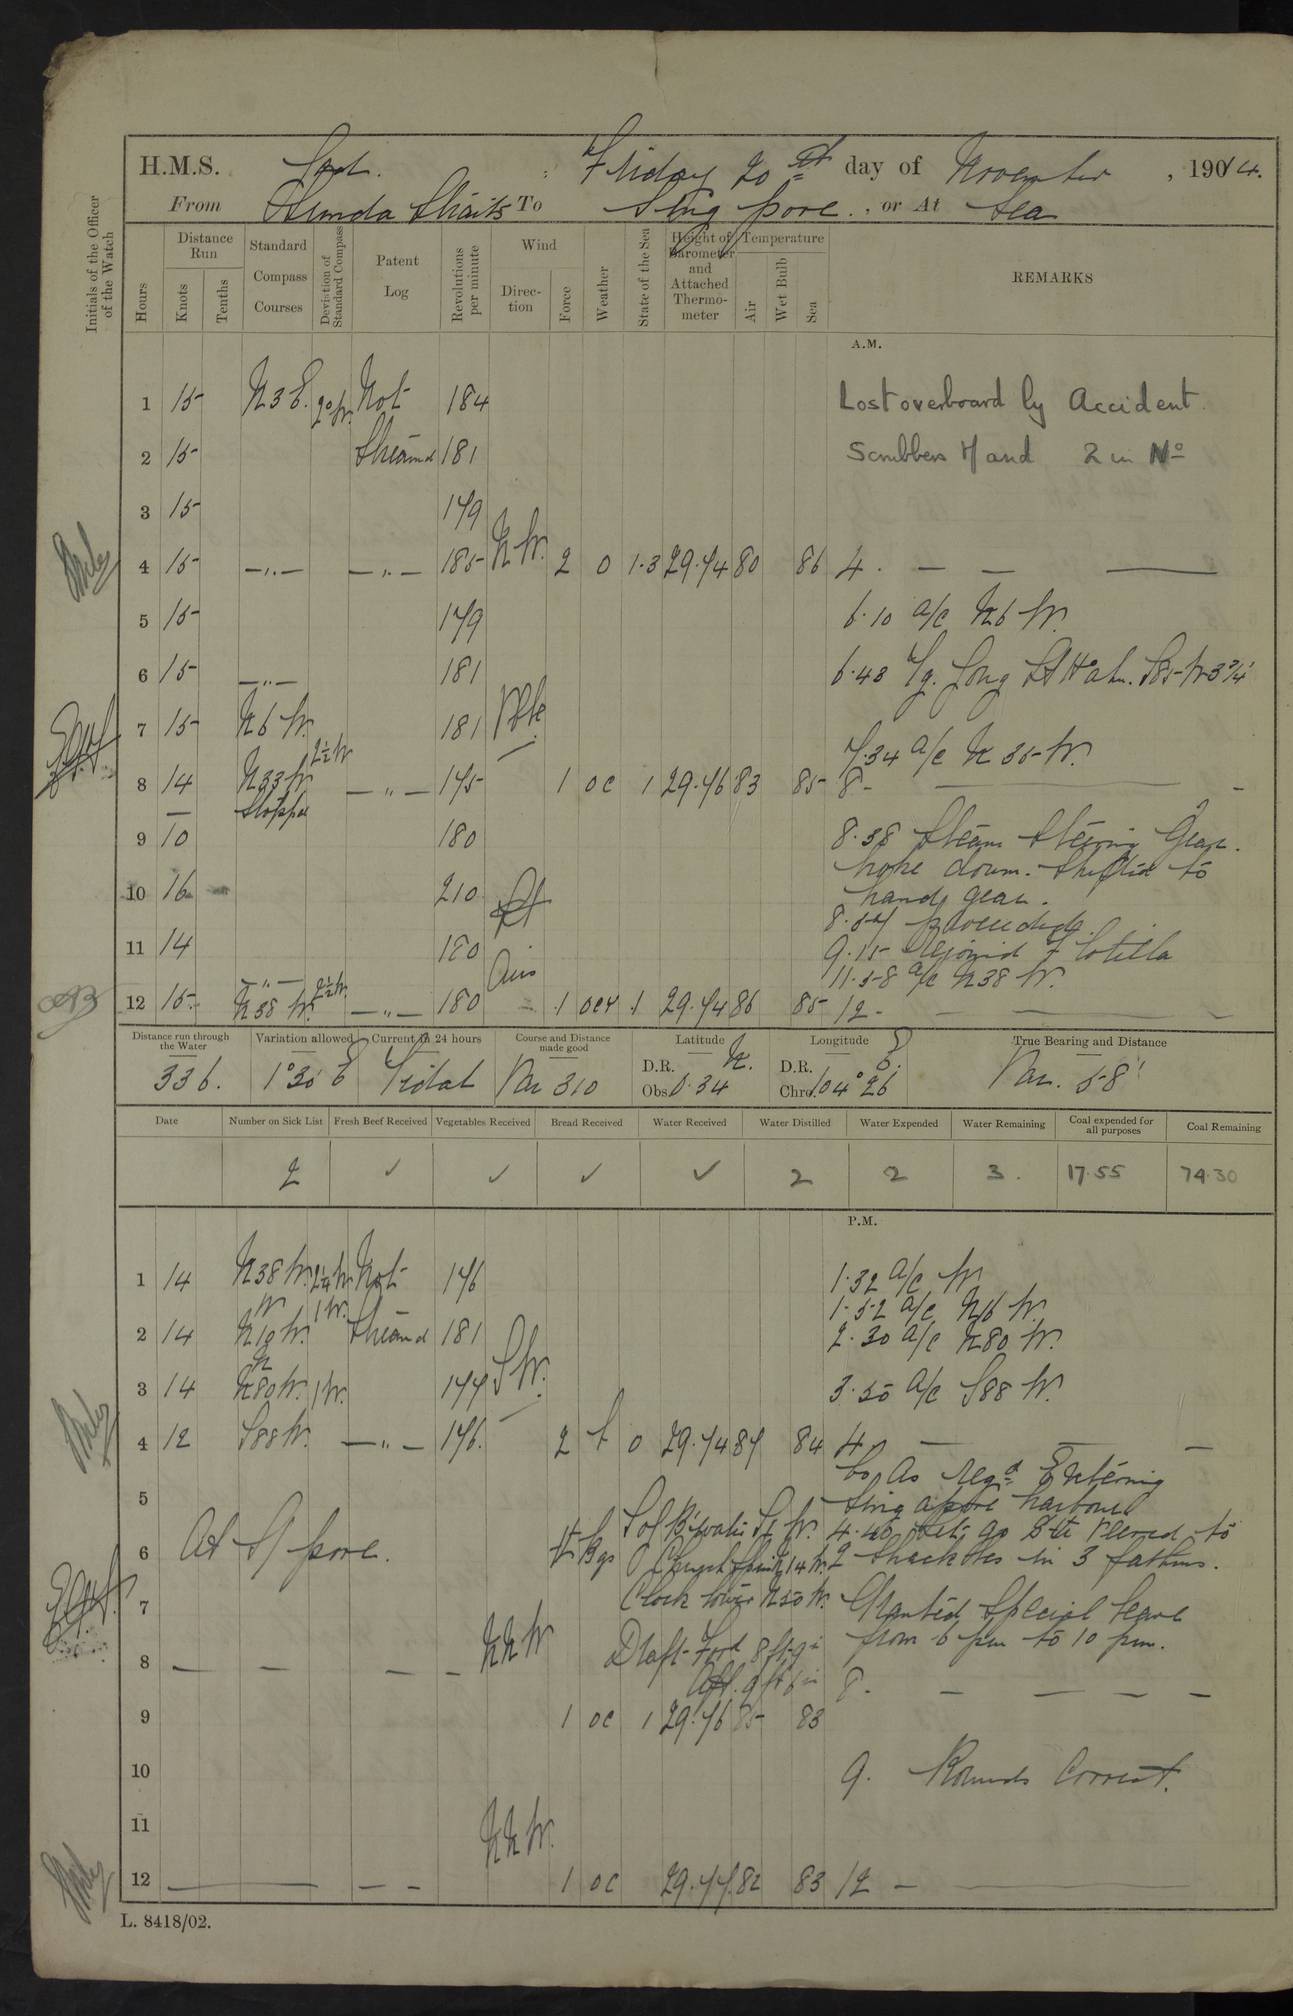 H.M.S. Friday 20th day of November, 1914.
From Sunda Straits To Singpore, or At Sea
Initials of the Officer of the Watch
Hours
Distance Run
Knots
Tenths
Standard Compass Courses
Deviation of Standard Compass
Patent Log
Revolutions per minute
Wind
Direction
Force
Weather
State of the Sea
Height of Barometer and Attached Thermometer
Temperature
Air
Wet Bulb
Sea
REMARKS
A.M.
1 15 N3E. 2°W. Not 184 Lost overboard by Accident
2 15 Streamd 181 Scrubbers Hand 2 in No
3 15 179
4 15 —"— —"— 185 NW. 2 0 1.3 29.74 80 86 4. — — —
5 15 179 6.10 a/c N6W.
6 15 —"— 181 6.48
7 15 N6W. 181 7.34 a/c N35W.
8 14 N33W 2½W —"— 175 1 oc 1 29.76 83 85 8 — —
Stopped
9 10 180 8.38 Steam Steering Gear.
broke down. Shifted to
10 16 210 Lt hand gear.
8.57 proceeded.
11 14 180 Airs 9.15 Rejoined Flotilla
—"— 2½W. 11.58 a/c N38W.
12 15 N38W. —"— 180 1 ocr 1 29.74 86 85 12 — — —
Distance run through the Water
Variation allowed
Current in 24 hours
Course and Distance made good
Latitude
Longitude
True Bearing and Distance
336. 1°30' E Tidal Var 310 D.R. N. Obs 0.34 D.R. E. Chro. 104°26 Var. 58'
Date
Number on Sick List
Fresh Beef Received
Vegetables Received
Bread Received
Water Received
Water Distilled
Water Expended
Water Remaining
Coal expended for all purposes
Coal Remaining
2 ✓ ✓ ✓ ✓ 2 2 3. 17.55 74.30
P.M.
1 14 N38W. 2¼W. Not 176 1.32 a/c W
W 1W. 1.52 a/c N16W.
2 14 Streamd 181 2.30 a/c N80W.
3 14 N80W. 1W. 177 SW. 3.50 a/c S88W.
4 12 S88W. —"— 176. 2 0 29.74 84 84 4 — — —
Co. As reqd Entering
5 Singapore harbour
4.40 let go Stb veered to
6 At S/pore. 2 shackles in 3 fathms.
Clock tower N50W.
7 Granted Special leave
NNW Draft Ford 8ft 9in from 6 pm to 10 pm.
8 — — — — Aft. 9ft 6in 8. — — — —
9 1 oc 1 29.76 85 83
10 9. Rounds Correct.
11 NNW.
12 — — — 1 oc 29.77 82 83 12 — —
L. 8418/02.